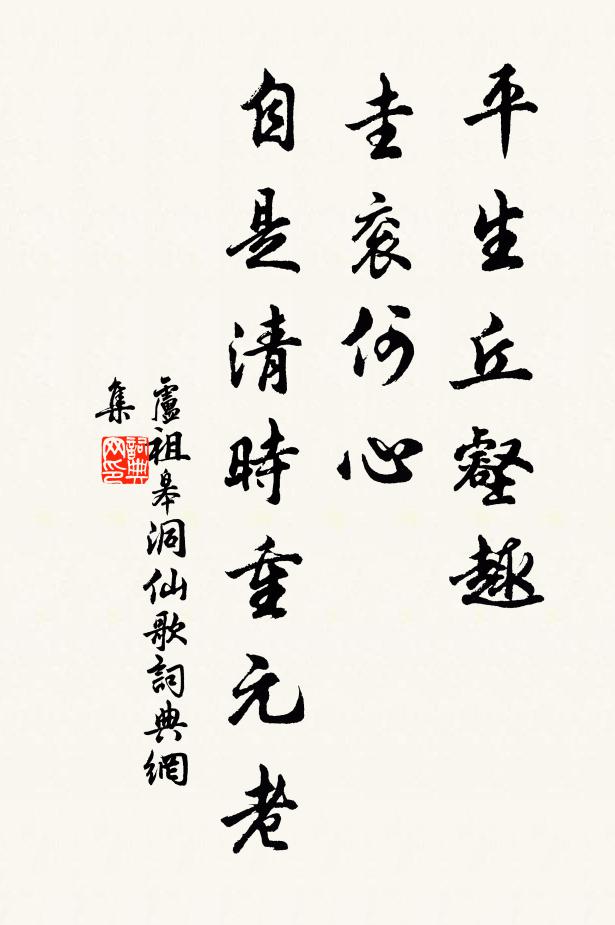 平生丘壑趣
圭衮何心
自是清時重元老
盧祖皋洞仙歌詞典網
集
詞典網印